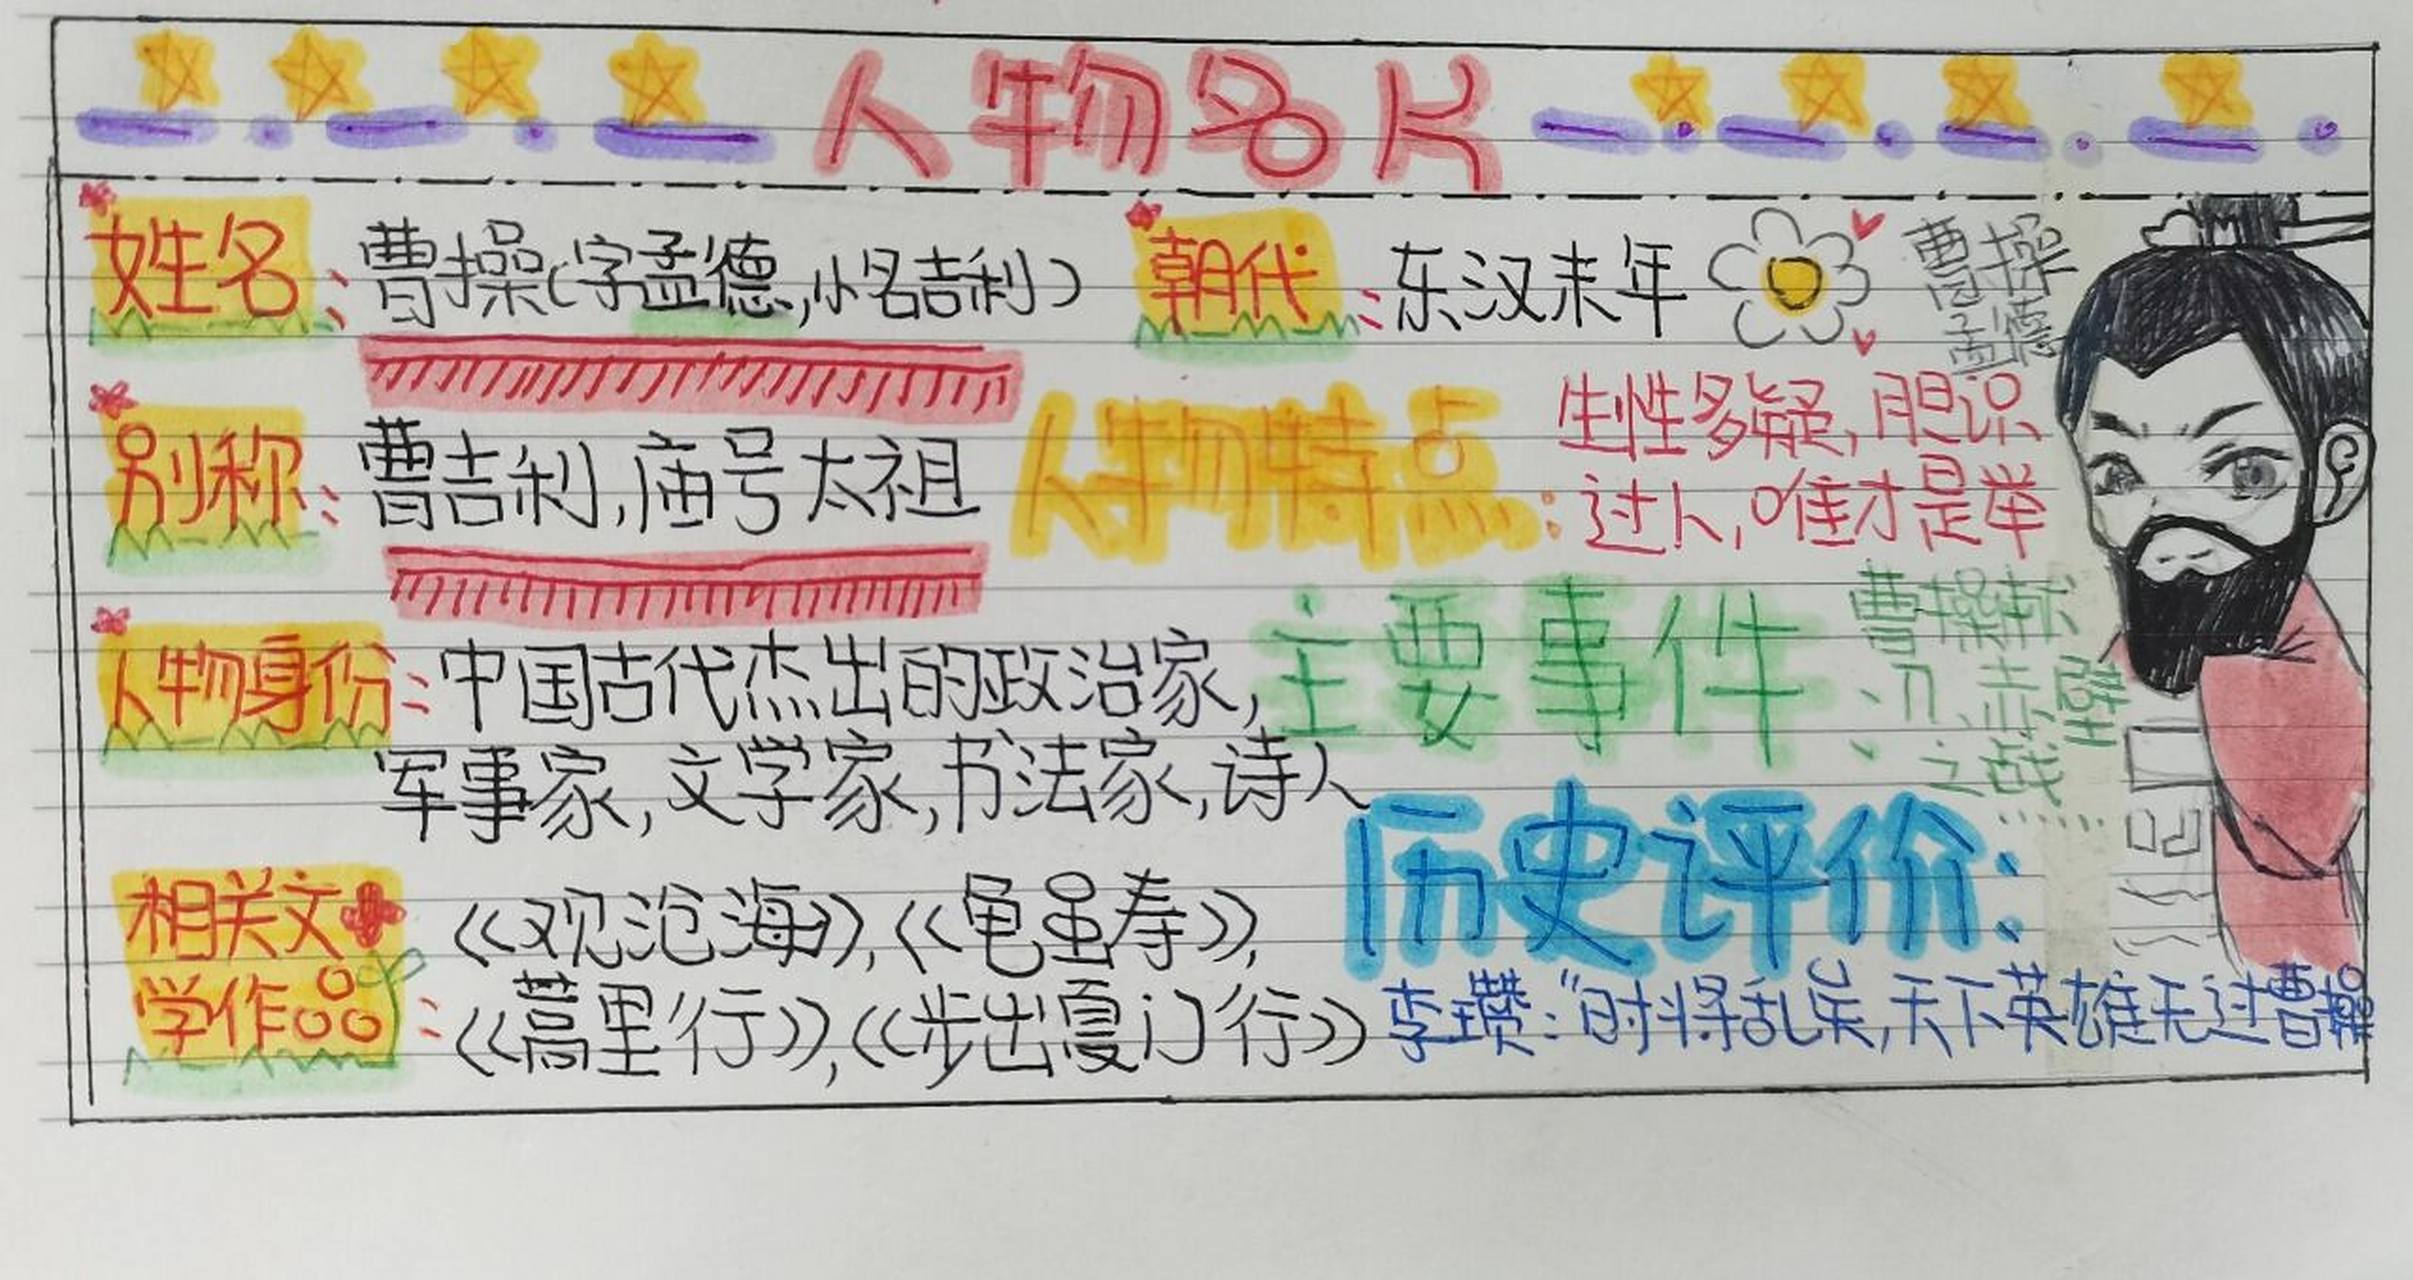 人物名片
姓名：曹操(字孟德,小名吉利)
朝代：东汉末年
曹操
孟德
别称：曹吉利,庙号太祖
人物特点：生性多疑,胆识
过人,唯才是举
人物身份：中国古代杰出的政治家,
军事家,文学家,书法家,诗人
主要事件：曹操献
刀、赤壁
之战……
相关文
学作品：《观沧海》,《龟虽寿》,
《蒿里行》,《步出夏门行》
历史评价：
李瓒：“时将乱矣,天下英雄无过曹操